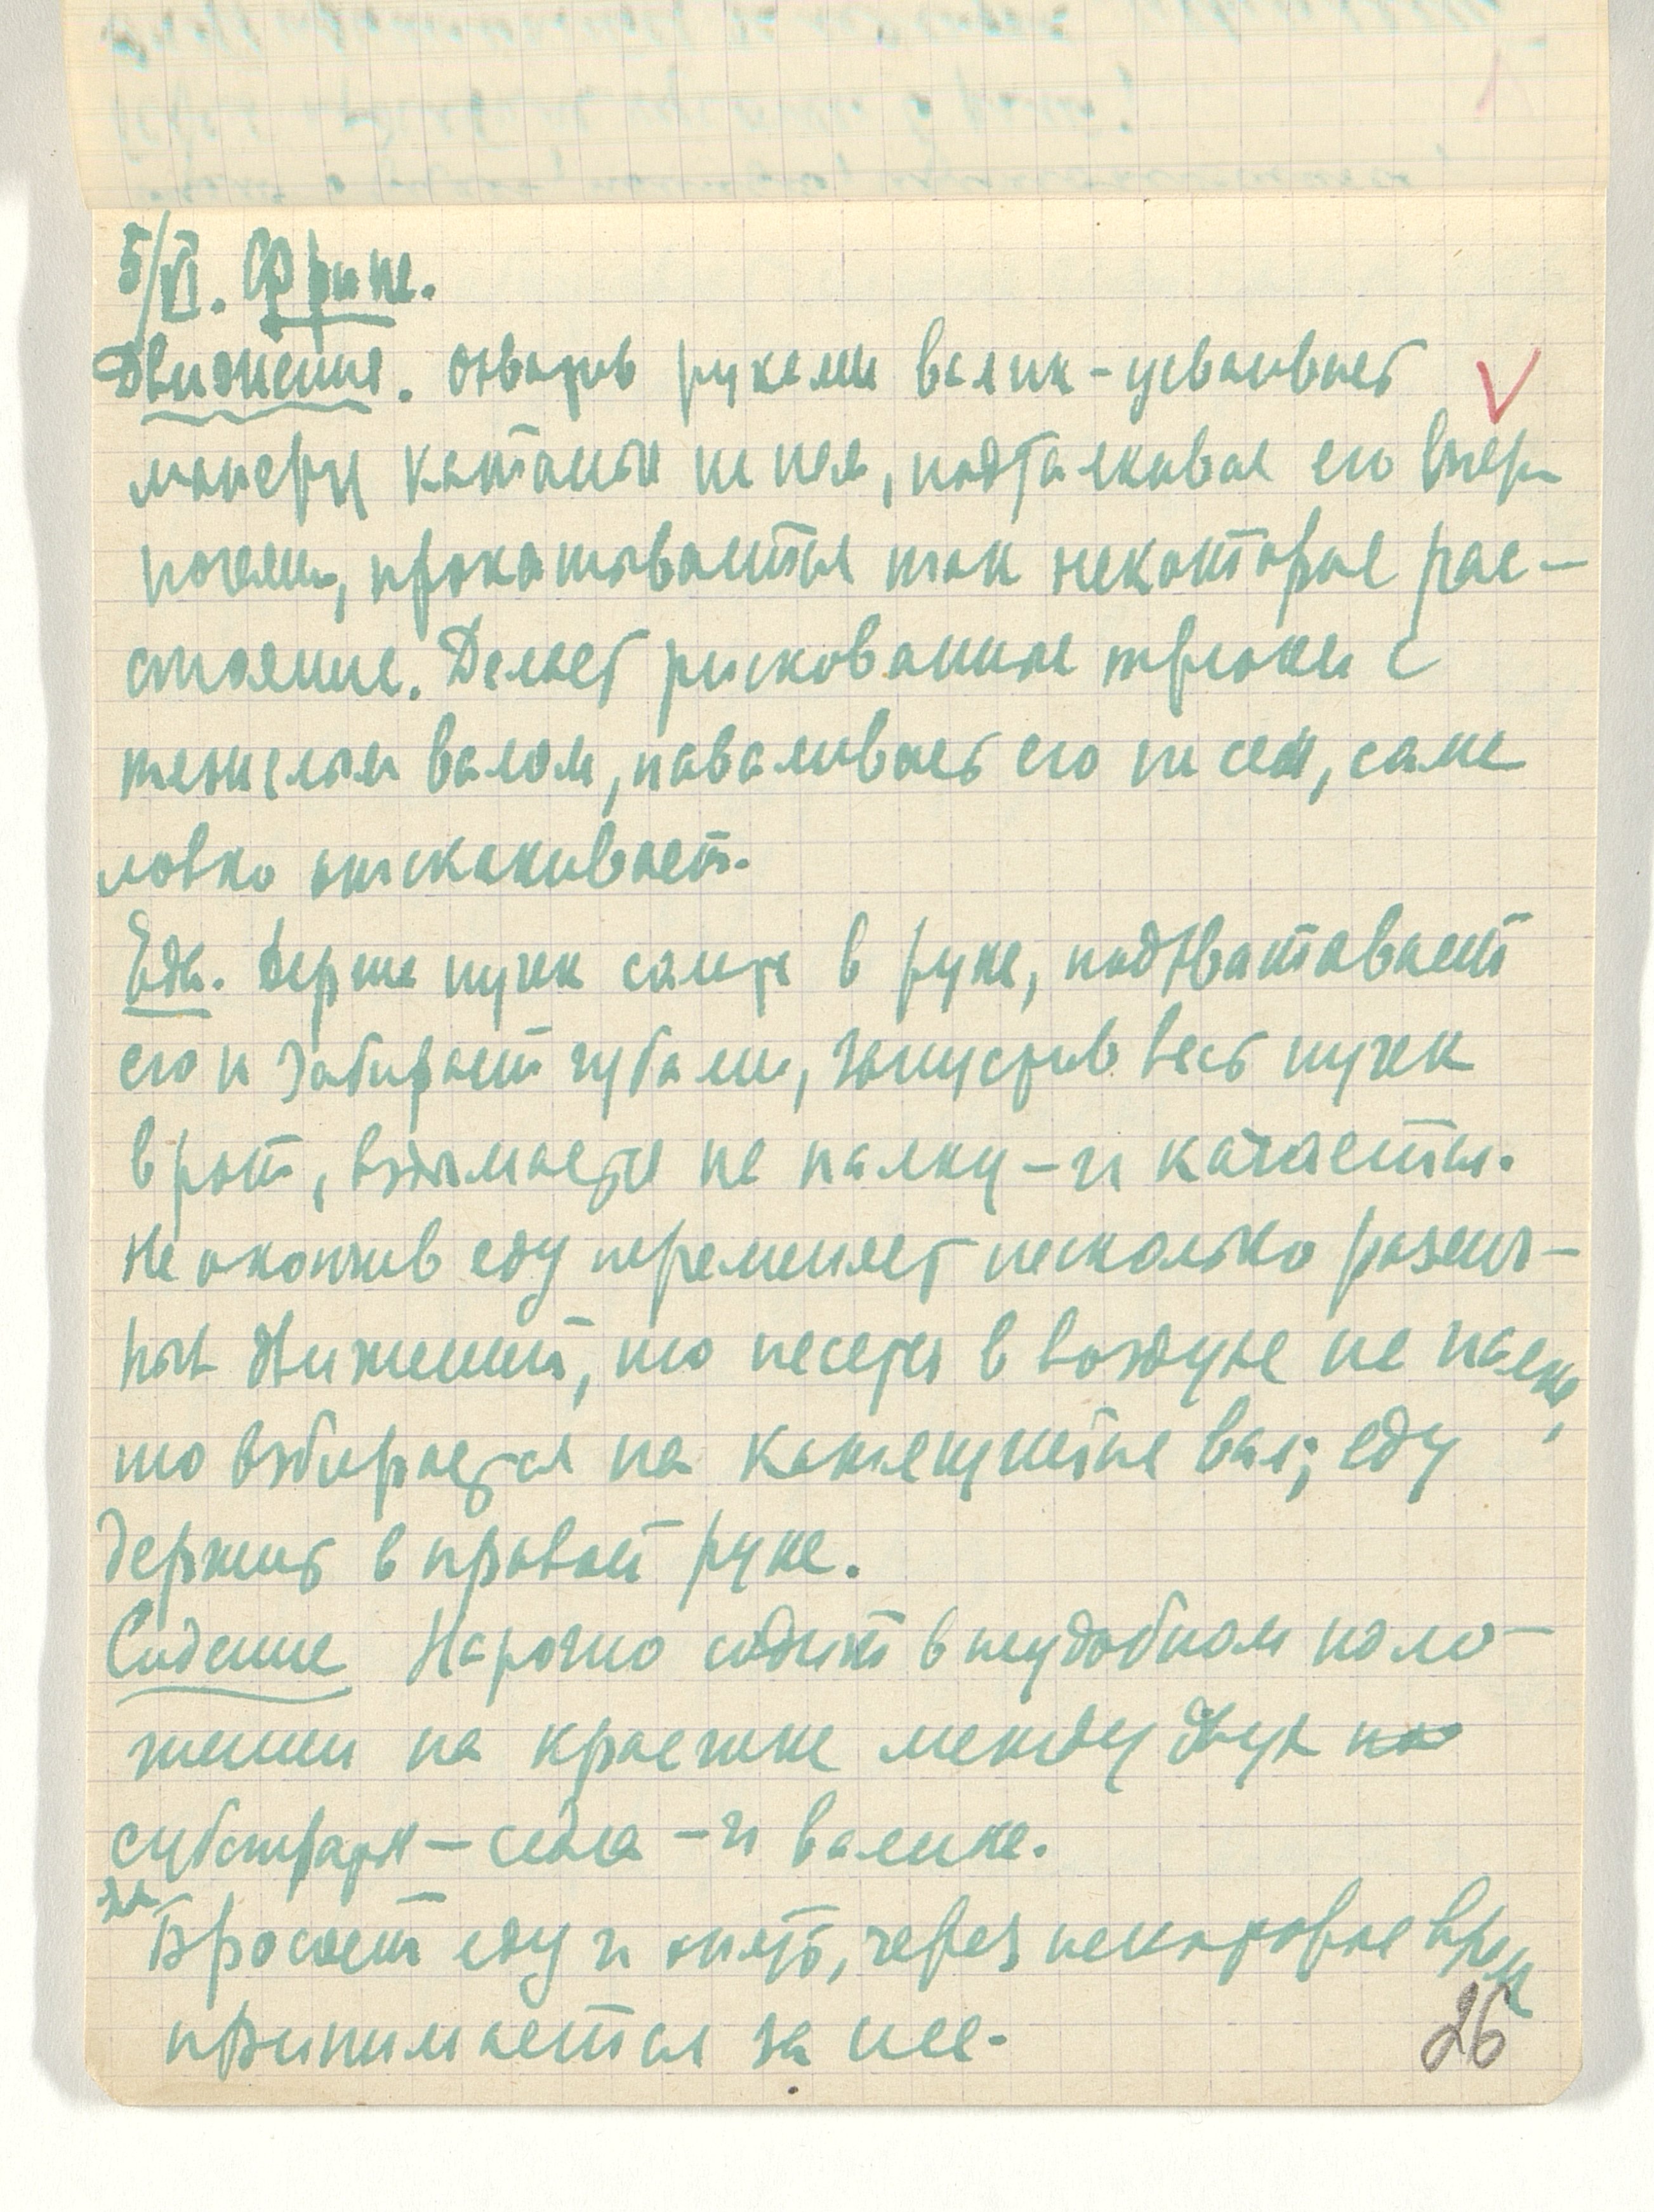 5/VI. Фрине.
Движения. Охватив руками валик – усваивает
манеру катанья на нем, подталкивая его
ногами, прокатывается так некоторое рас-
стояние. Делает рискованные трюки с
тяжелым валом, наваливает его на себя, сама
ловко отскакивает.
Еда. Держа пучек салата в руке, подхватывает
его и забирает губами, запустив весь пучек
в рот, взымается на палку – и качается.
Не окончив еду переменяет несколько различ-
ных движений, то несется в воздухе на палке,
то взбирается на катящийся вал; еду
держит в правой руке.
Сидение Нарочно сидит в неудобном поло-
жении на краешке между двух
субстрата – седла – и валика.
Бросает еду и опять, через некоторое время
принимается за нее.
26